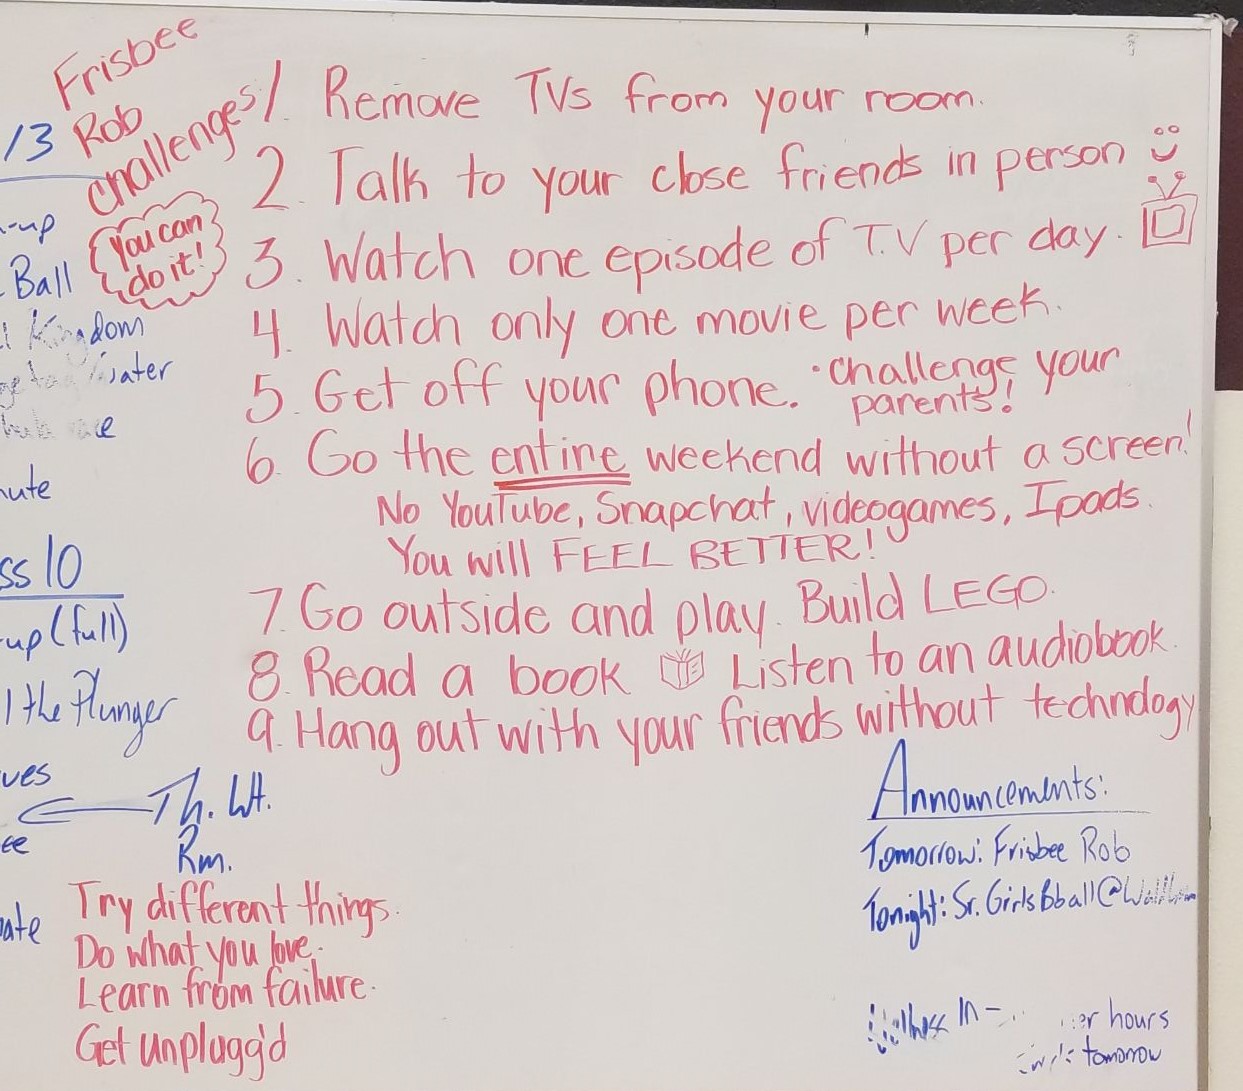 Frisbee
Rob
Challenges!
You can
do it!
1. Remove TVs from your room.
2. Talk to your close friends in person
3. Watch one episode of T.V per day.
4. Watch only one movie per week.
5. Get off your phone. · challenge your
parents!
6. Go the entire weekend without a screen!
No YouTube, Snapchat, videogames, Ipads.
You will FEEL BETTER!
7. Go outside and play. Build LEGO.
8. Read a book Listen to an audiobook.
9. Hang out with your friends without technology
/3
-up
Ball
Kingdom
ute
ss 10
up (full)
l the Plunger
ves
Th. Wt.
Rm.
ee
ate
Try different things.
Do what you love.
Learn from failure.
Get unplugg'd
Announcements:
Tomorrow: Frisbee Rob
Tonight: Sr. Girls Bball @
In -
hours
tomorrow